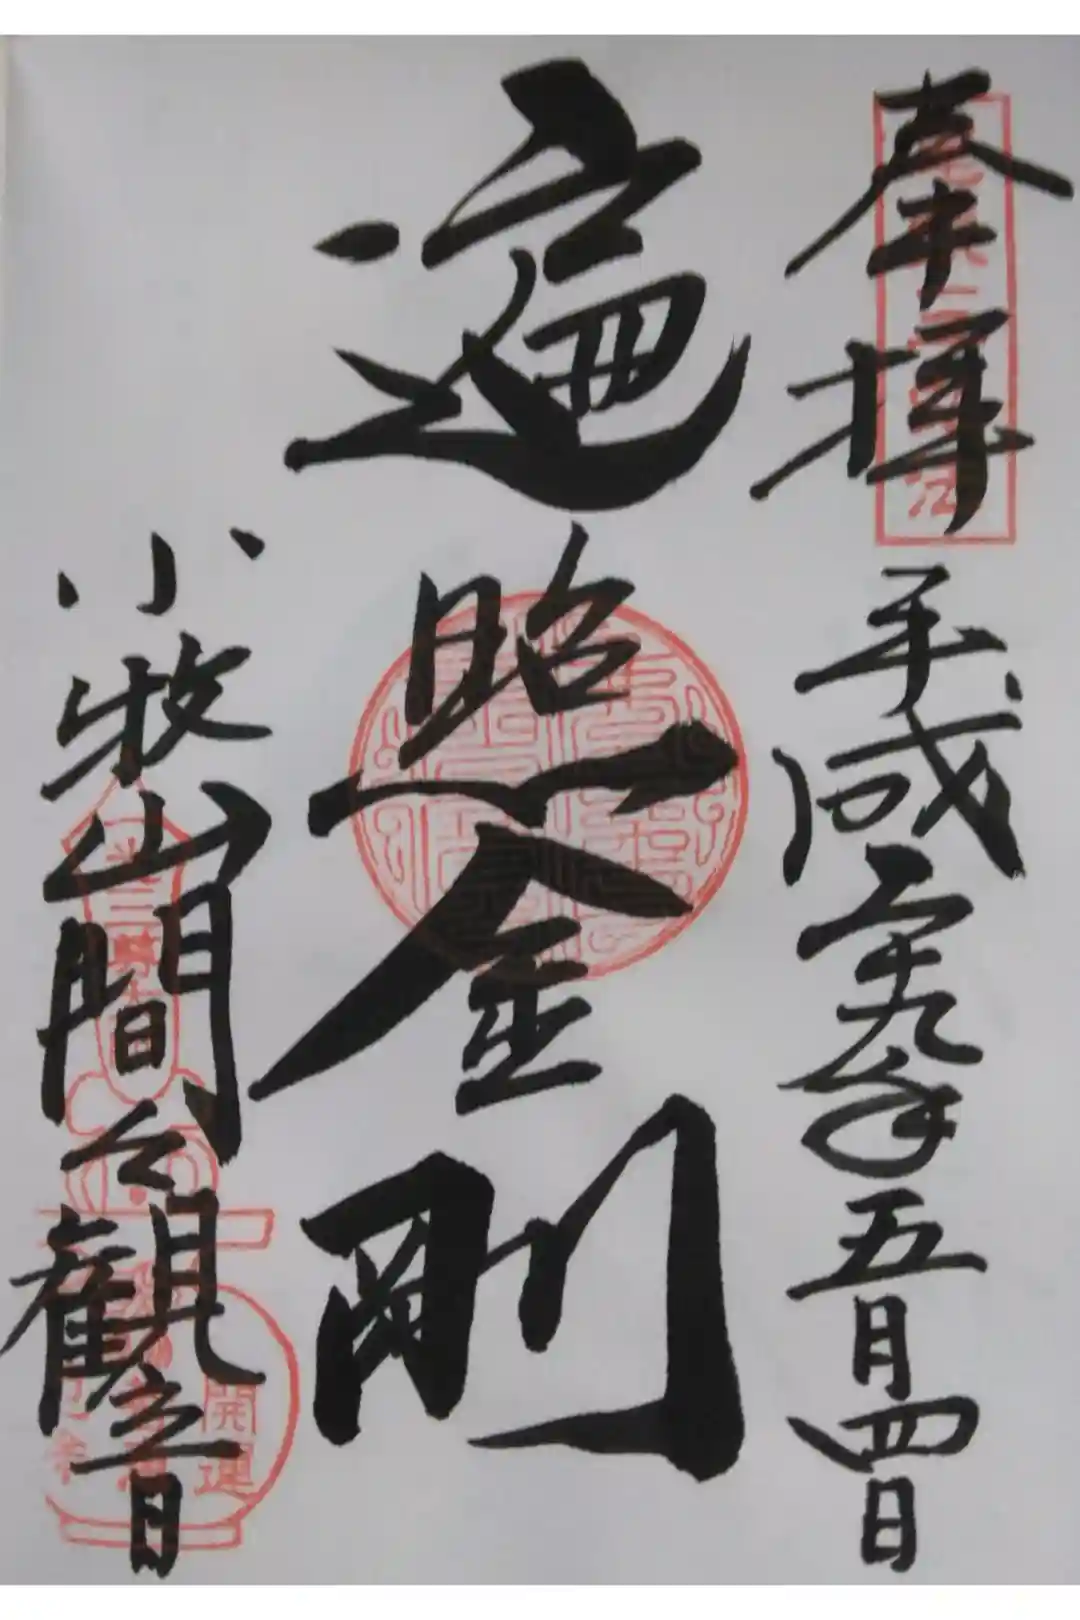 奉拝
平成二十九年五月四日
遍照金剛
小牧山間々観音
開運